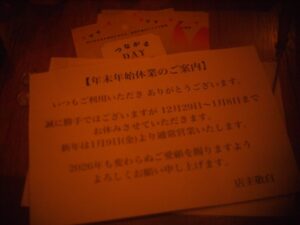 つながる
DAY
【年末年始休業のご案内】
いつもご利用いただき ありがとうございます。
誠に勝手ではございますが 12月29日~1月8日まで
お休みさせていただきます。
新年は1月9日(金)より通常営業いたします。
2026年も変わらぬご愛顧を賜りますよう
よろしくお願い申し上げます。
店主敬白